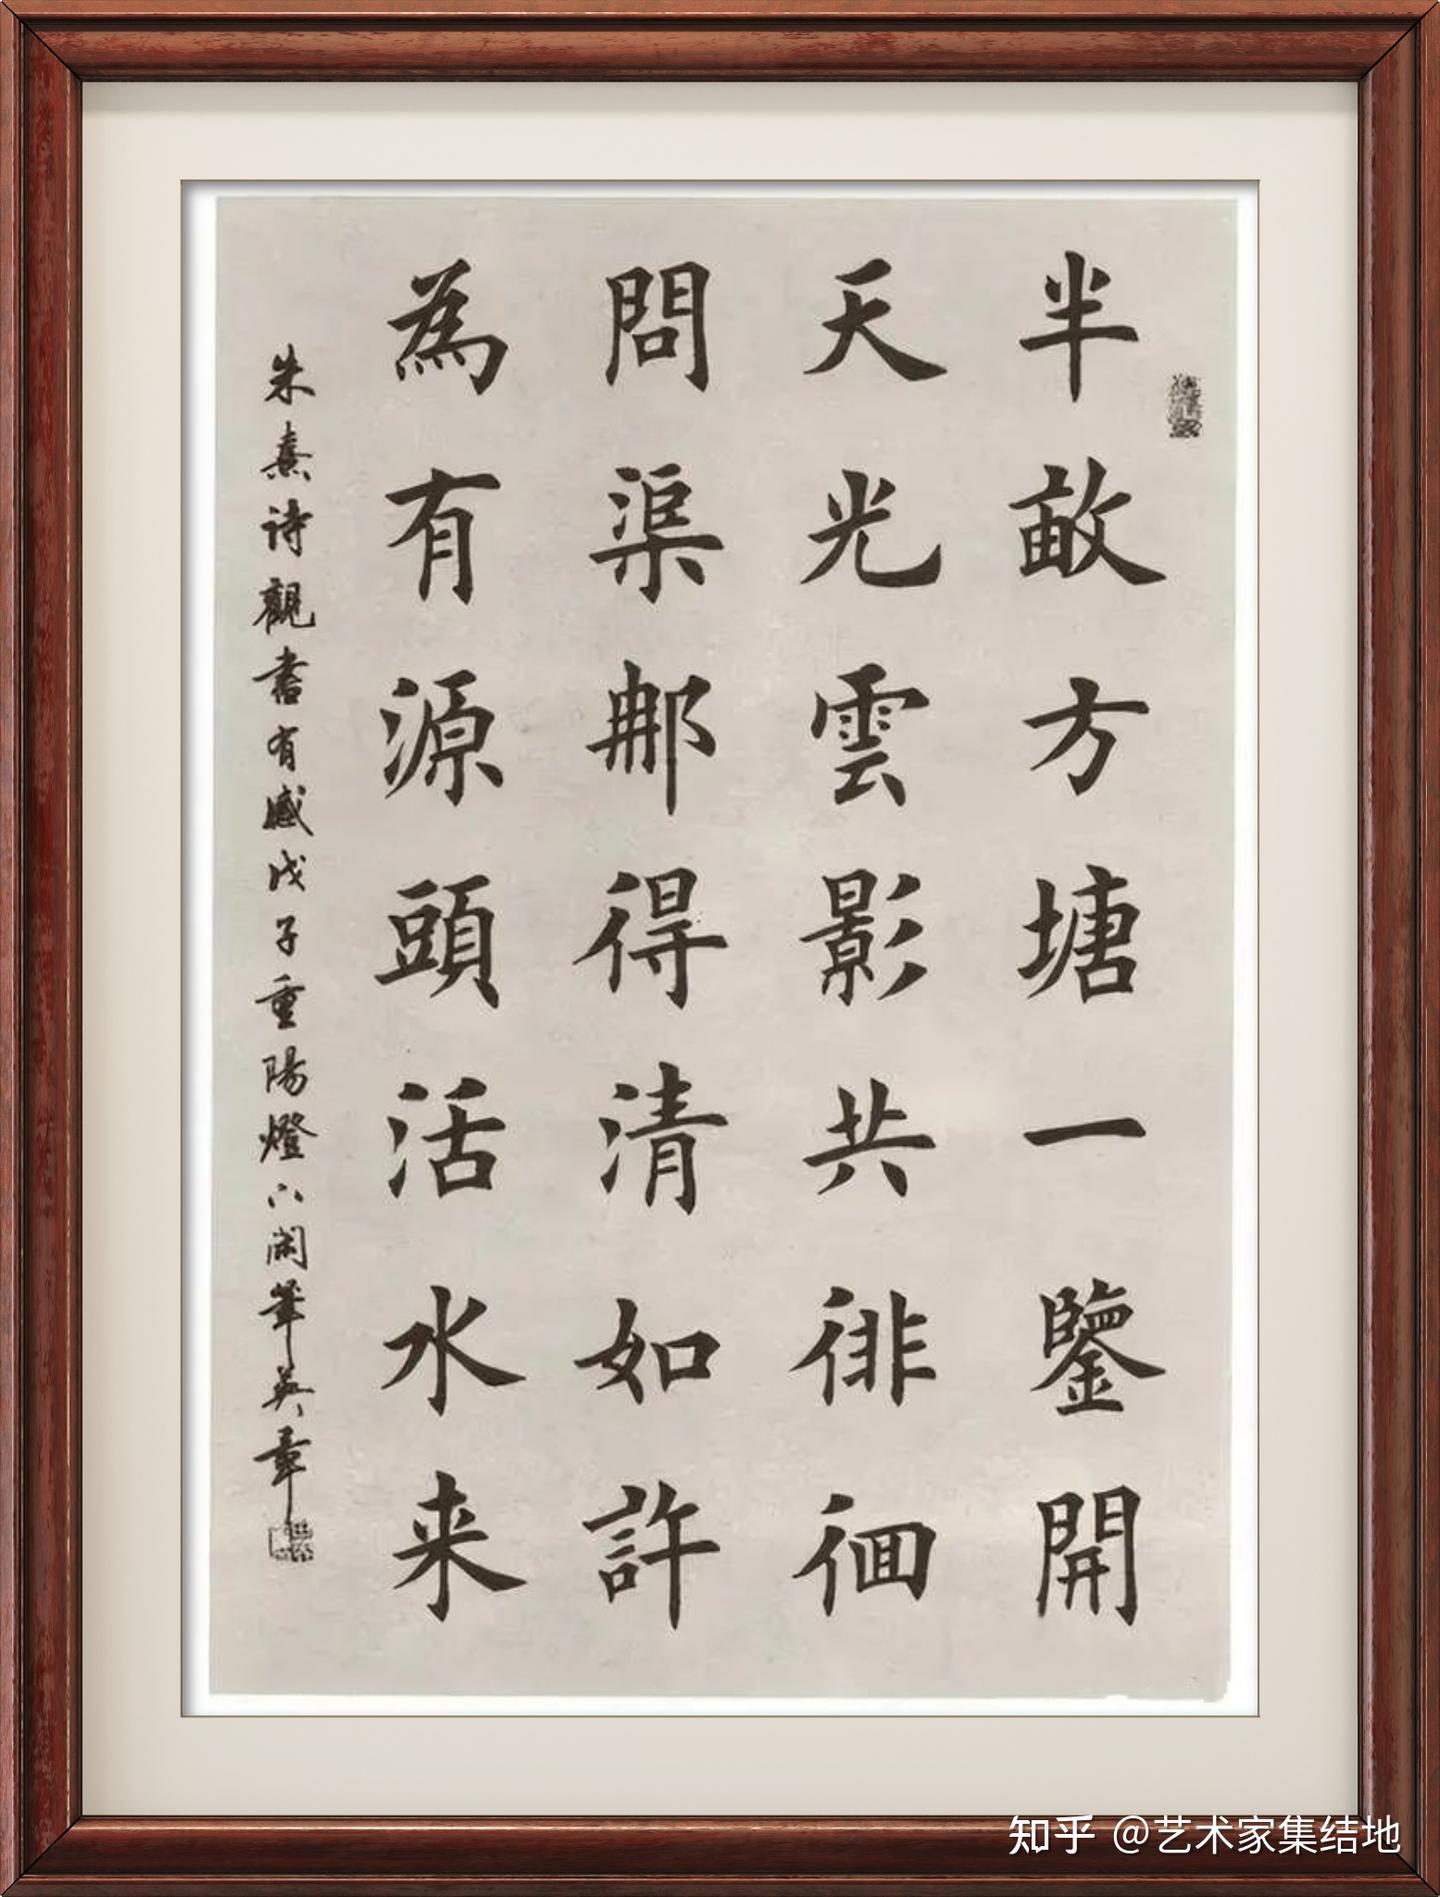 半畝方塘一鑒開
天光雲影共徘徊
問渠那得清如許
為有源頭活水来
朱熹诗觀書有感戊子重陽燈下開筆英章
知乎 @艺术家集结地